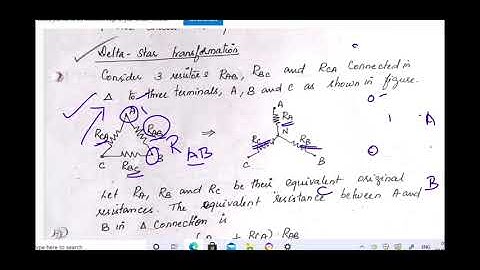 Delta-Star transformation
Consider 3 resistors RAB, RBC and RCA connected in
Δ to three terminals, A, B and C as shown in figure.
A
A
RCA
RAB
R
AB
B
RBC
C
⇒
A
RA
N
RC
RB
C
B
0
1
A
0
B
Let RA, RB and RC be their equivalent original
resistances. The equivalent resistance between A and
B in Δ connection is
RCA) · RAB
type here to search